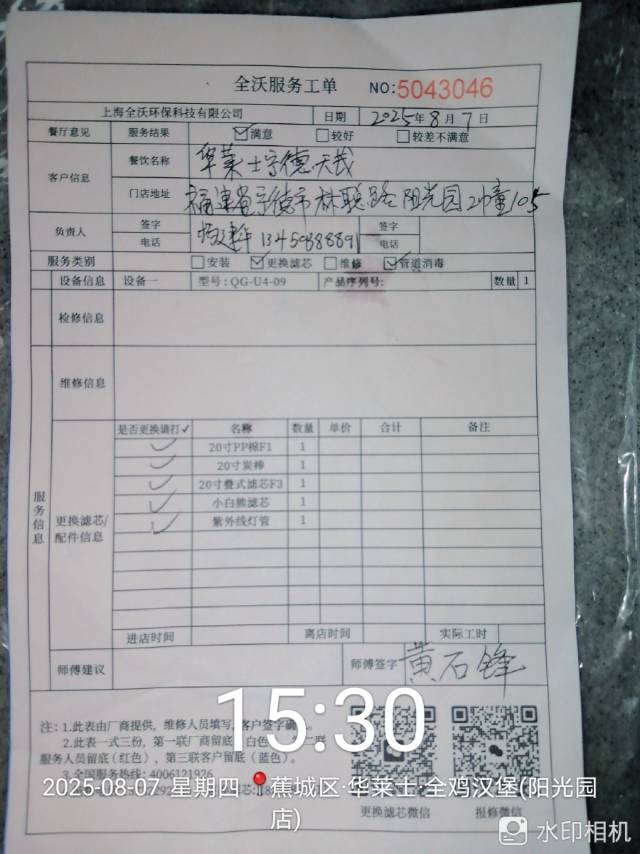 全沃服务工单 NO:5043046
上海全沃环保科技有限公司 日期 2025年8月7日
餐厅意见 服务结果 满意 较好 较差不满意
客户信息 餐饮名称 华莱士宁德天茂
门店地址 福建省宁德市林聪路阳光园2幢105
负责人 签字 签字
电话 13459388891 电话
服务类别 安装 更换滤芯 维修 管道消毒
设备信息 设备一 型号:QG-U4-09 产品序列号: 数量 1
检修信息
维修信息
服务信息
更换滤芯/配件信息
是否更换请打✓ 名称 数量 单价 合计 备注
✓ 20寸PP棉F1 1
✓ 20寸炭棒 1
✓ 20寸叠式滤芯F3 1
✓ 小白熊滤芯 1
✓ 紫外线灯管 1
进店时间 离店时间 实际工时
师傅建议 师傅签字 黄石锋
注: 1.此表由厂商提供, 维修人员填写, 客户签字确
2.此表一式三份, 第一联厂商留底 白色 二联
服务人员留底(红色), 第三联客户留底(蓝色)。
3.全国服务热线: 4006121926
更换滤芯微信 报修微信
15:30
2025-08-07 星期四 蕉城区·华莱士·全鸡汉堡(阳光园
店)
水印相机